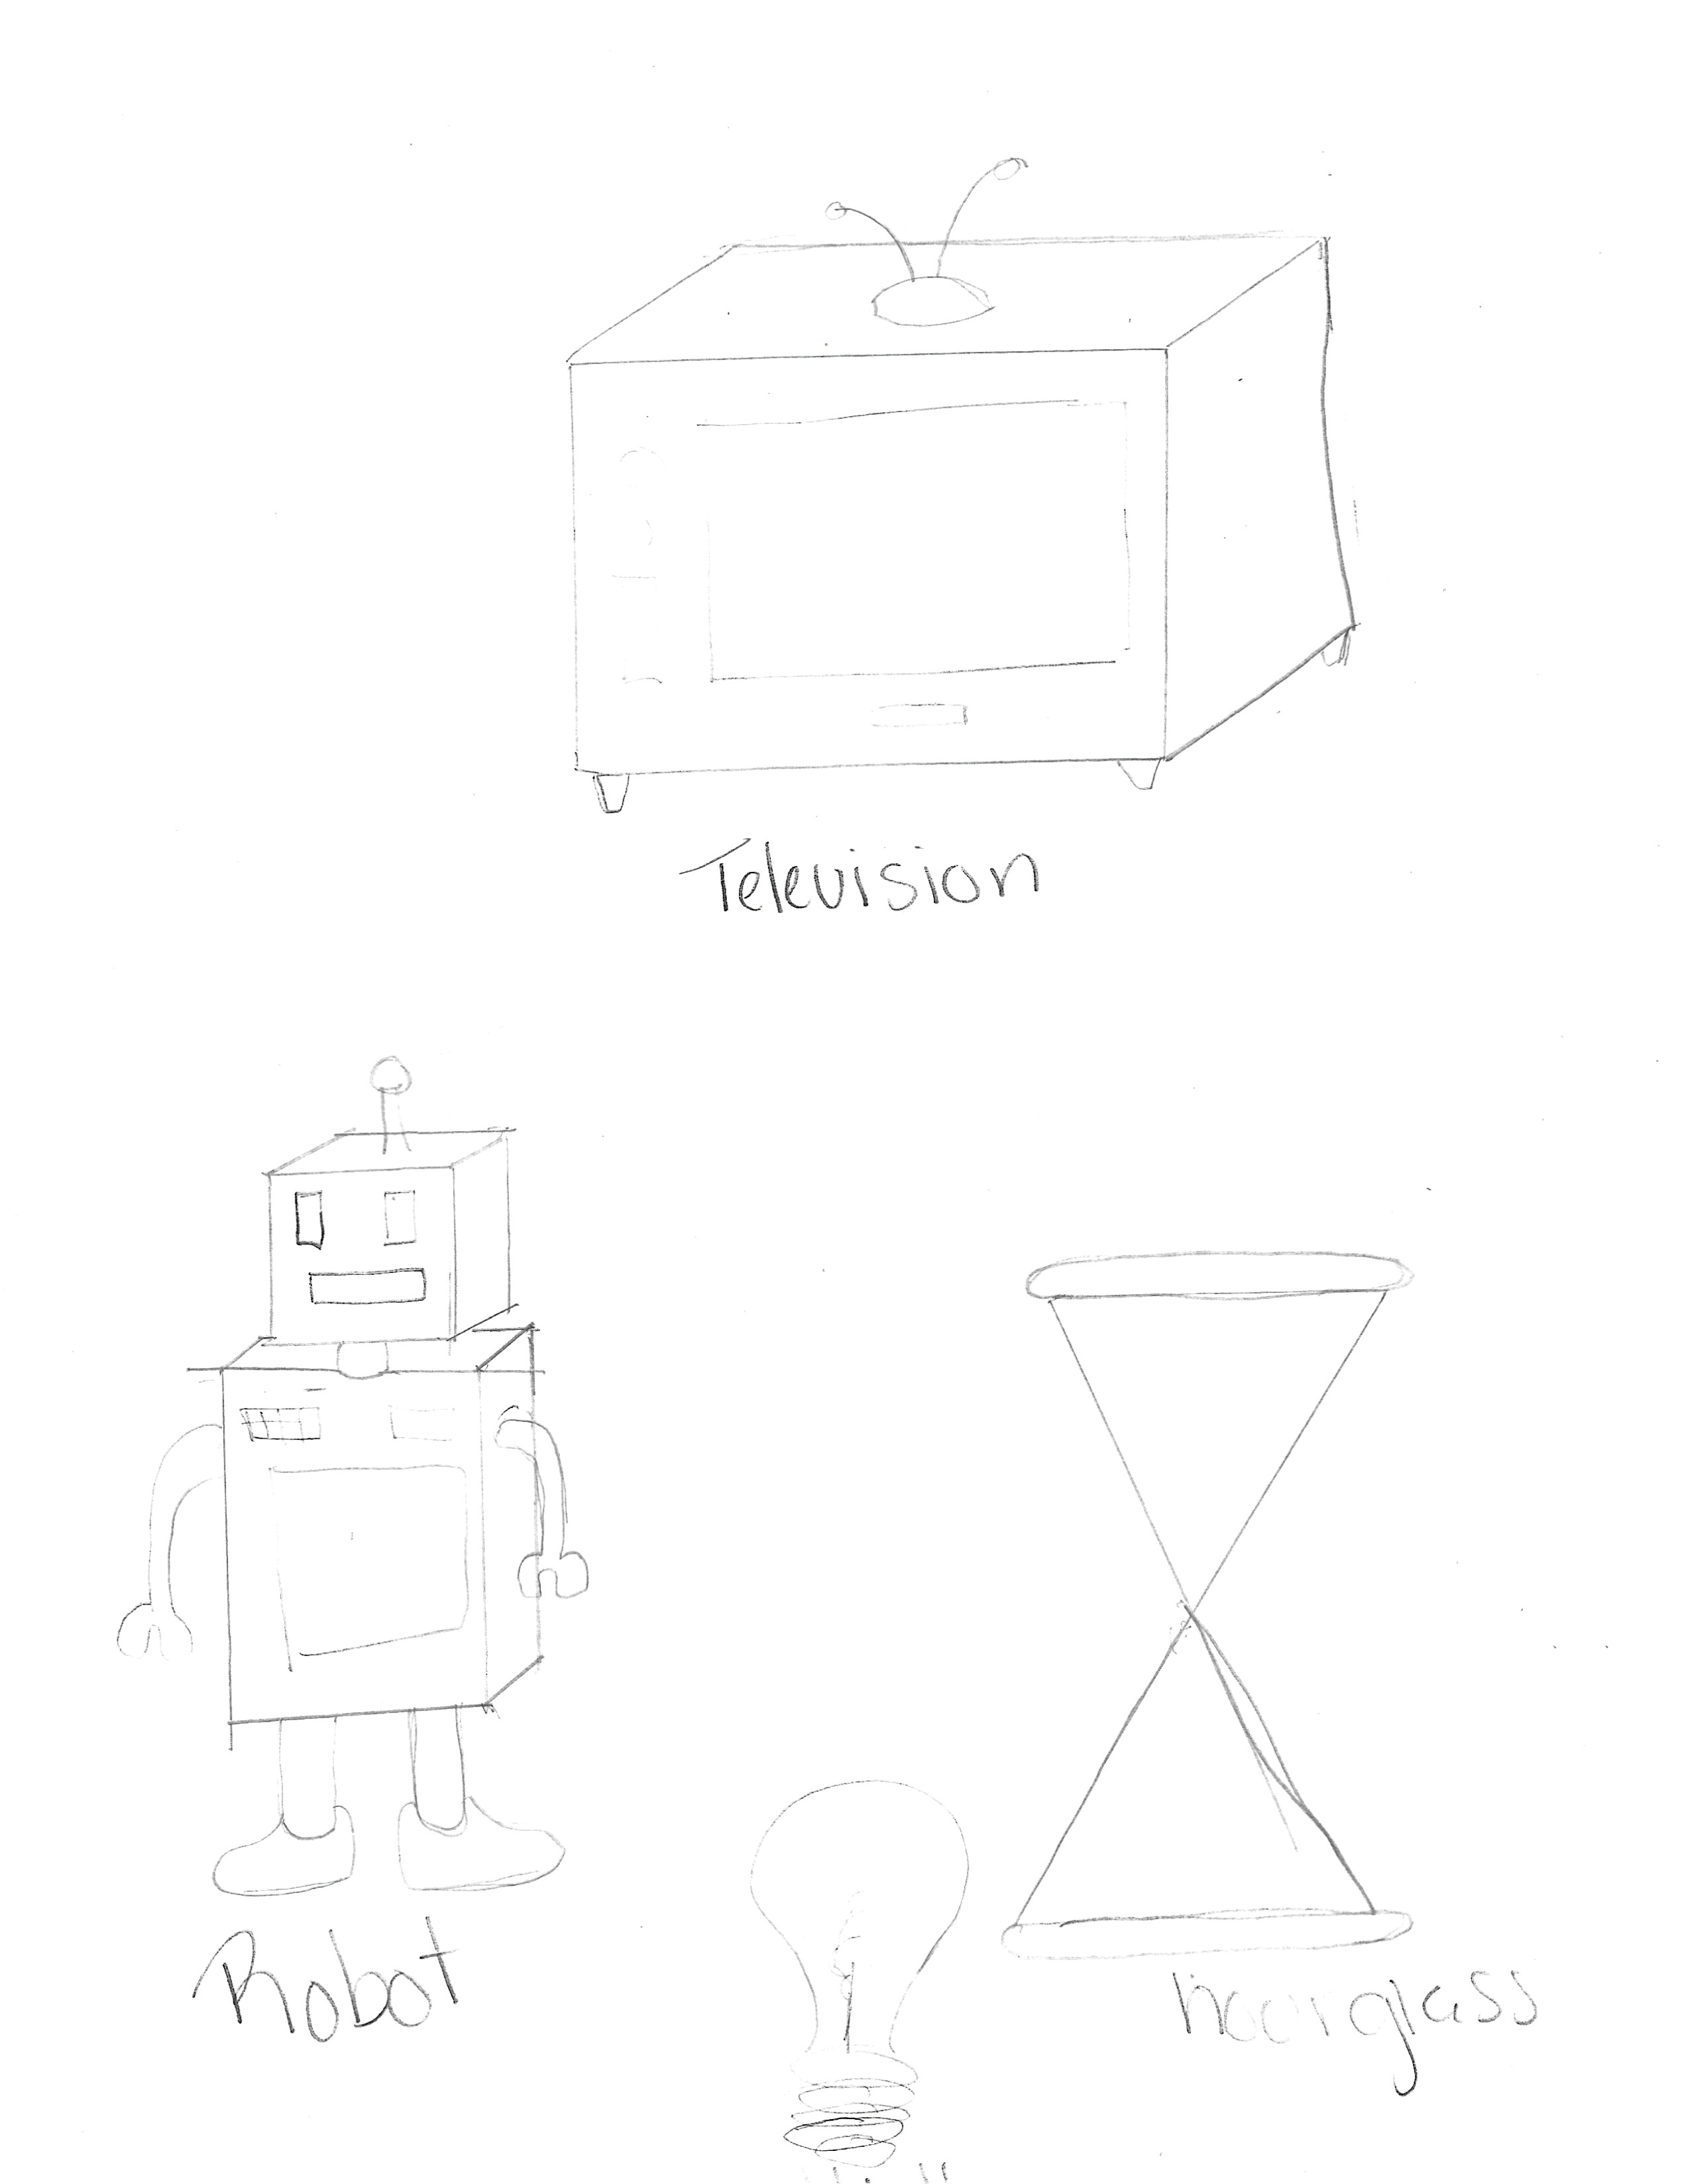 Television
Robot
hourglass